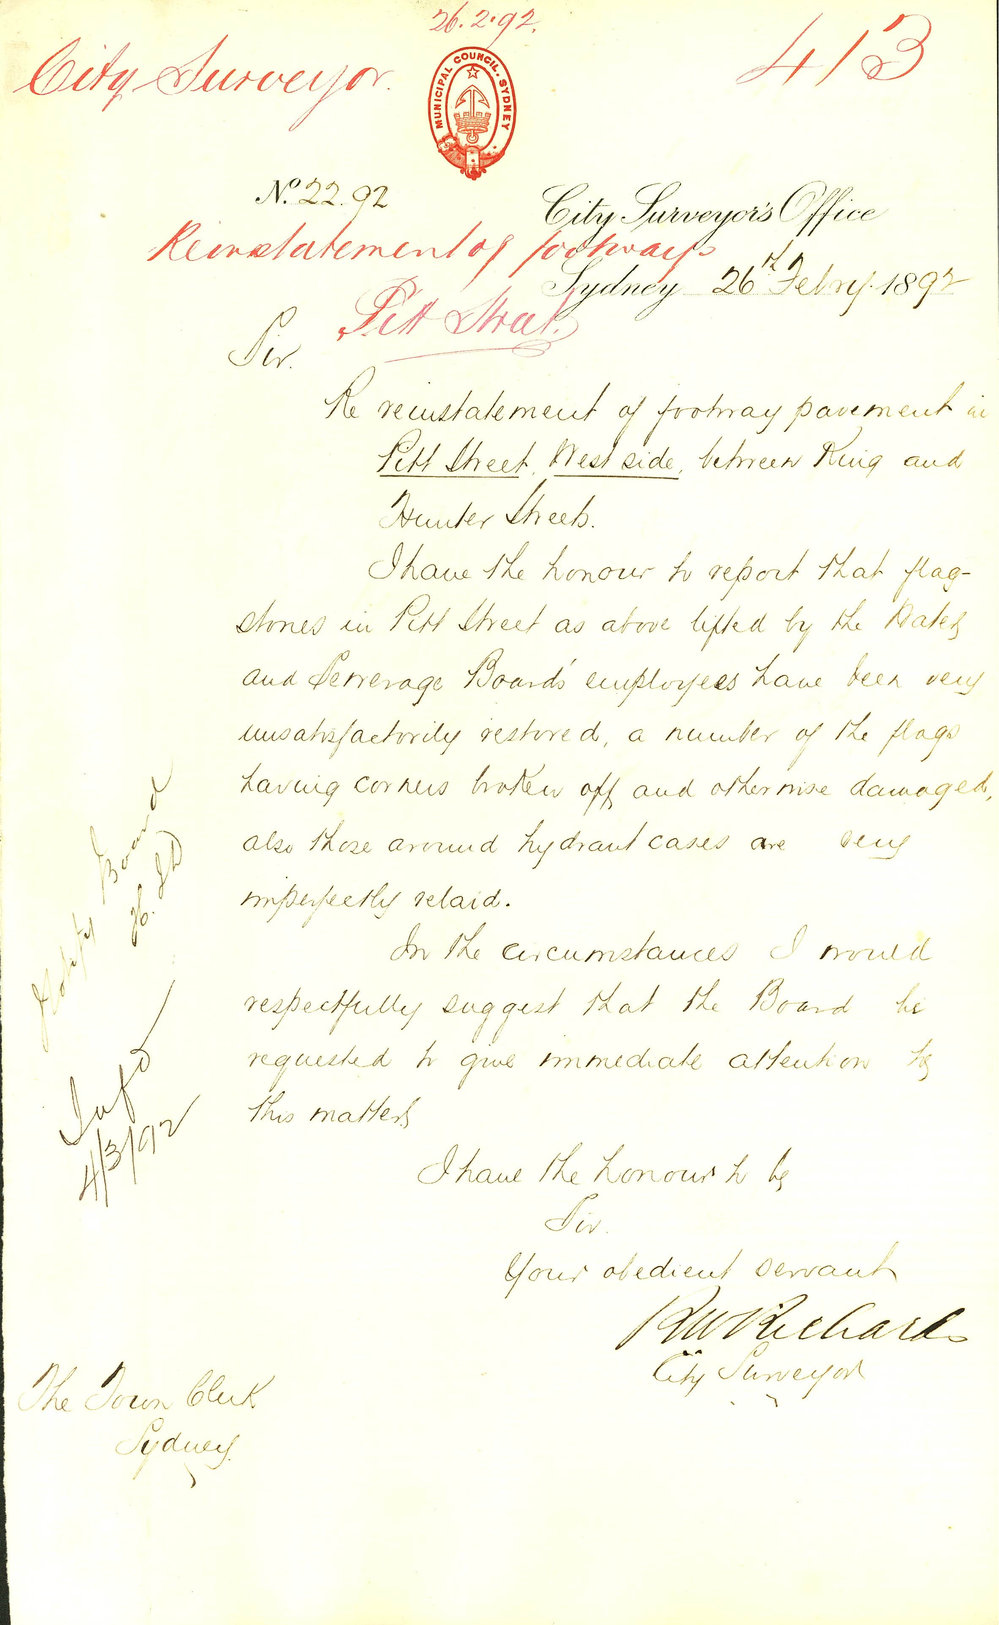 26.2.92.
City Surveyor.
413
MUNICIPAL COUNCIL. SYDNEY
No. 22.92
City Surveyor's Office
Reinstatement of footways
Sydney 26th Febry. 1892
Pitt Street.
Sir.
Re reinstatement of footway pavement in
Pitt Street, West side, between King and
Hunter Streets.
I have the honour to report that flag-
stones in Pitt Street as above lifted by the Water
and Sewerage Board's employees have been very
unsatisfactorily restored, a number of the flags
having corners broken off, and otherwise damaged,
also those around hydrant cases are very
imperfectly relaid.
In the circumstances I would
respectfully suggest that the Board be
requested to give immediate attention to
this matter
I have the honour to be
Sir.
Your obedient servant
R W Richards
City Surveyor
The Town Clerk
Sydney.
Notify Board
4/3/92